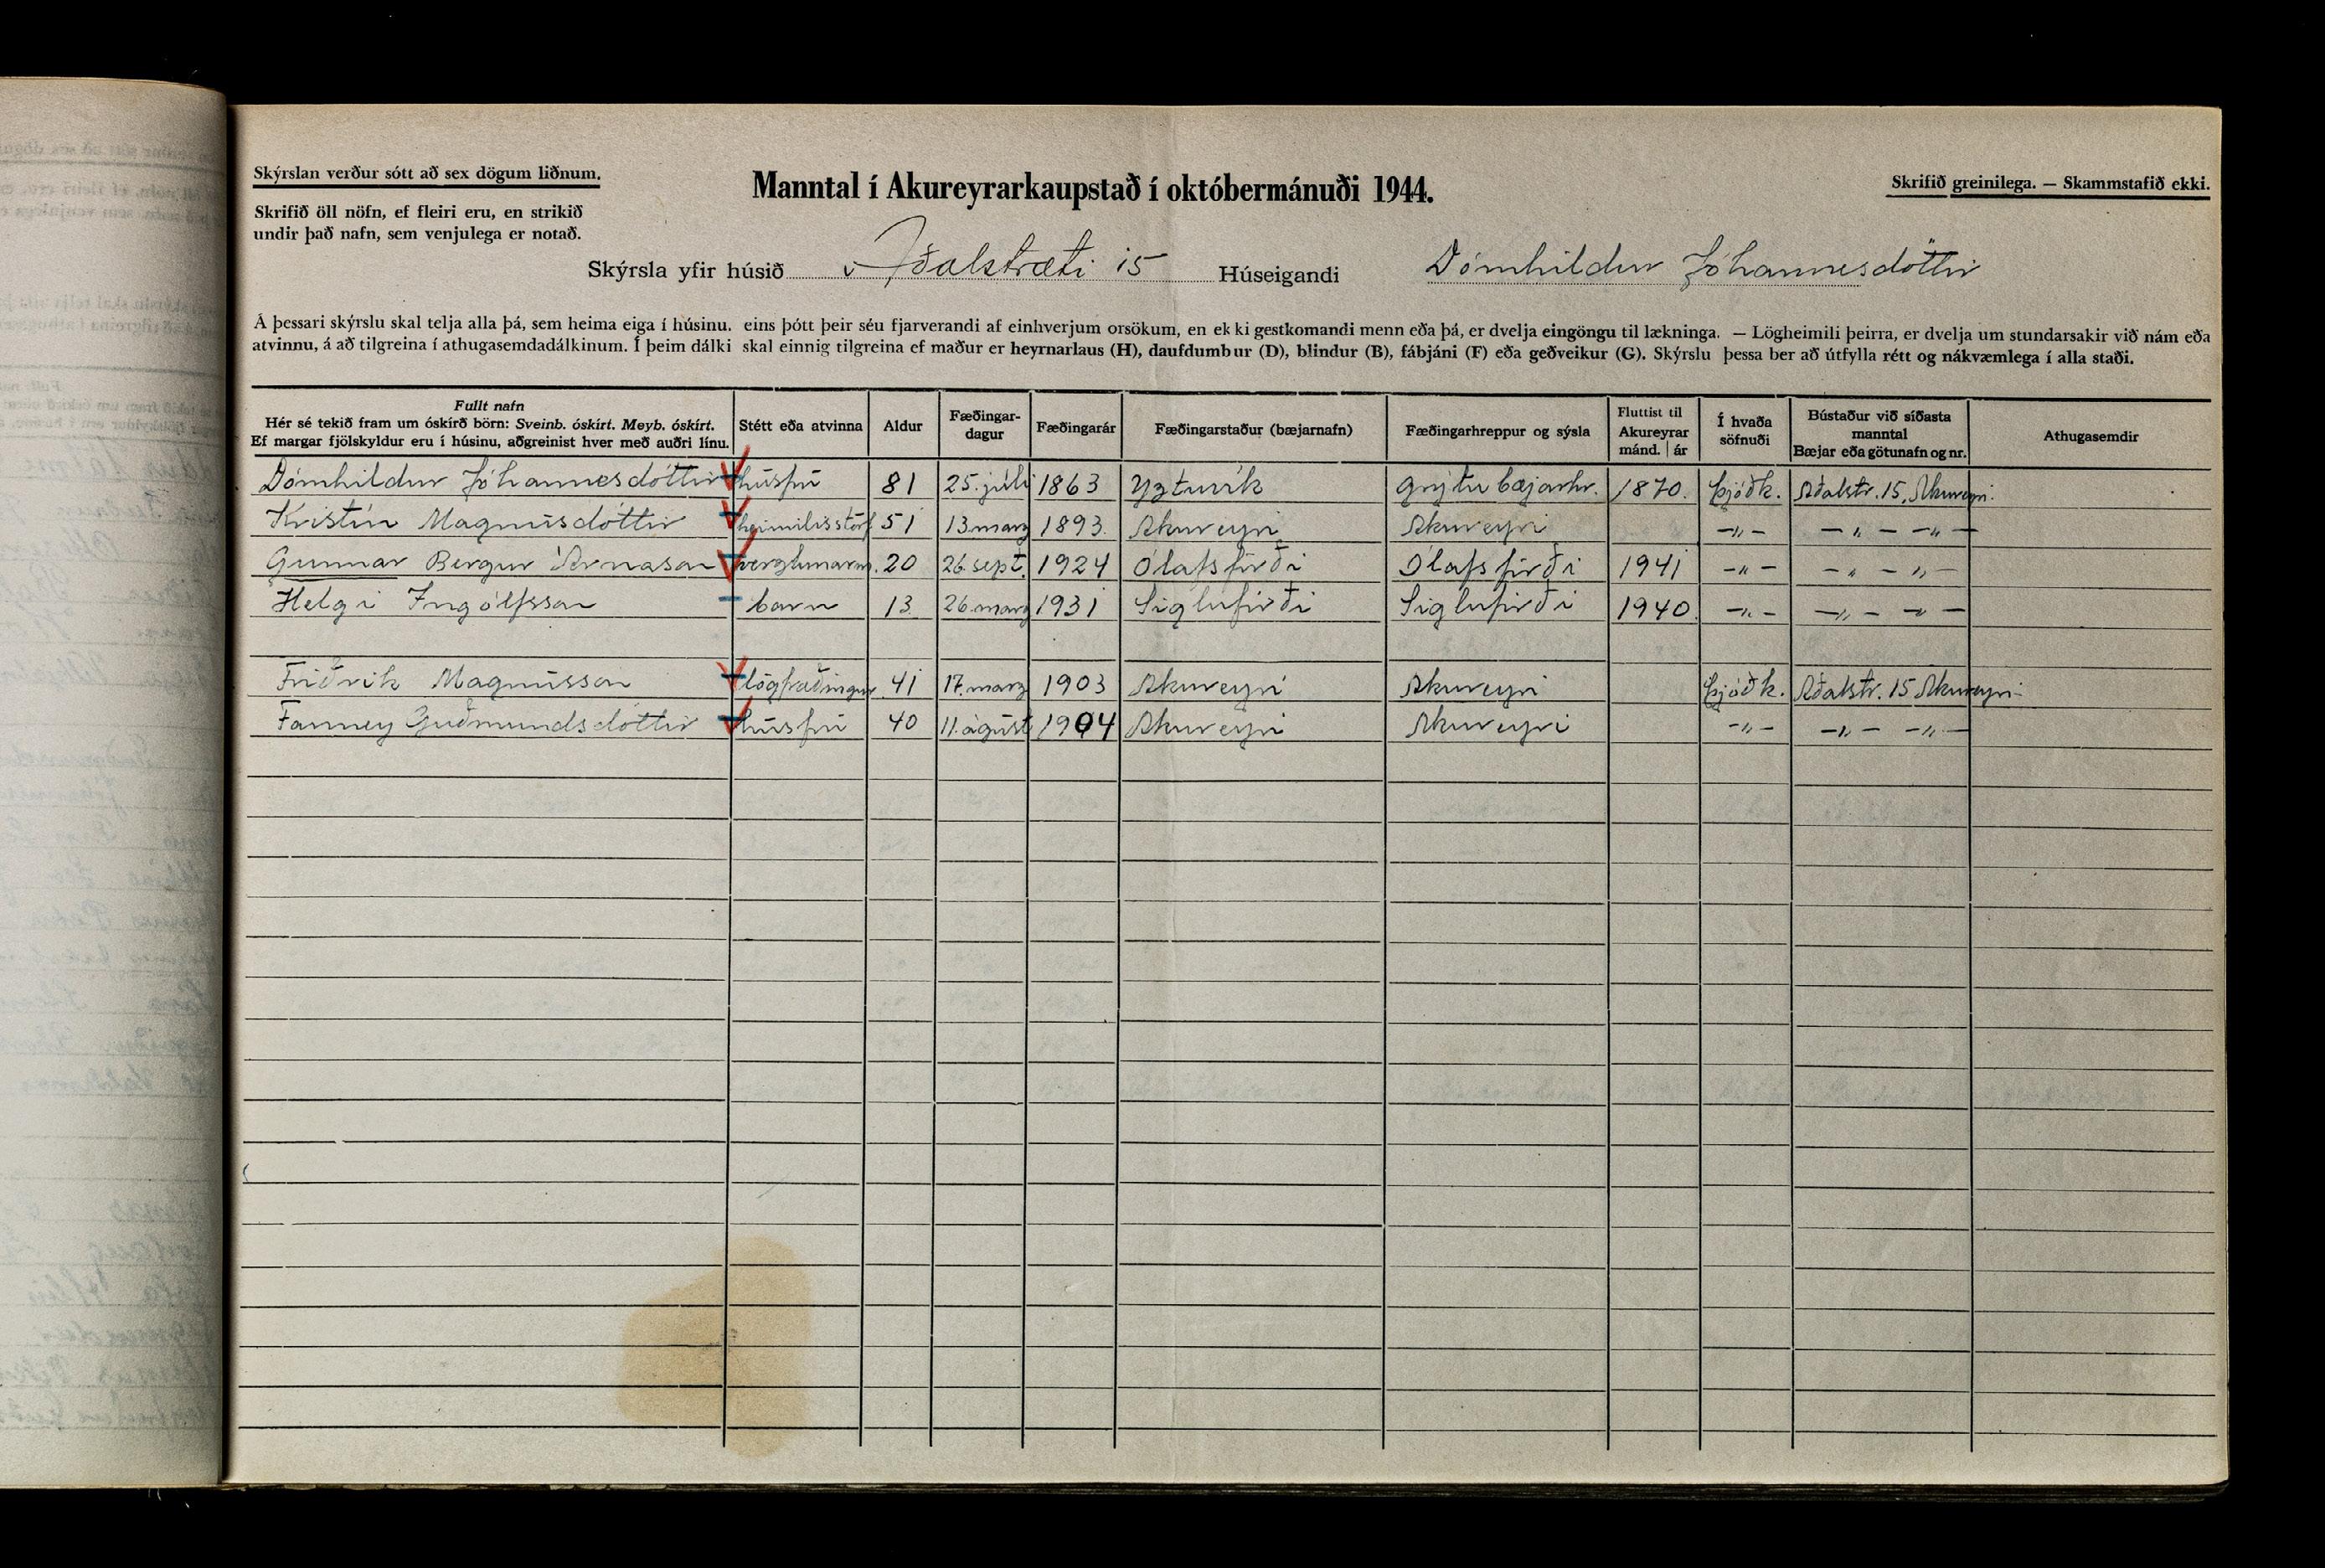 Skýrslan verður sótt að sex dögum liðnum.
Manntal í Akureyrarkaupstað í októbermánuði 1944.
Skrifið greinilega. — Skammstafið ekki.
Skrifið öll nöfn, ef fleiri eru, en strikið
undir það nafn, sem venjulega er notað.
Skýrsla yfir húsið Aðalstræti 15 Húseigandi Dómhildur Jóhannesdóttir
Á þessari skýrslu skal telja alla þá, sem heima eiga í húsinu. eins þótt þeir séu fjarverandi af einhverjum orsökum, en ekki gestkomandi menn eða þá, er dvelja eingöngu til lækninga. — Lögheimili þeirra, er dvelja um stundarsakir við nám eða
atvinnu, á að tilgreina í athugasemdadálkinum. Í þeim dálki skal einnig tilgreina ef maður er heyrnarlaus (H), daufdumbur (D), blindur (B), fábjáni (F) eða geðveikur (G). Skýrslu þessa ber að útfylla rétt og nákvæmlega í alla staði.
Fullt nafn
Hér sé tekið fram um óskírð börn: Sveinb. óskírt. Meyb. óskírt.
Ef margar fjölskyldur eru í húsinu, aðgreinist hver með auðri línu.
Stétt eða atvinna
Aldur
Fæðingar-
dagur
Fæðingarár
Fæðingarstaður (bæjarnafn)
Fæðingarhreppur og sýsla
Fluttist til
Akureyrar
mánd. | ár
Í hvaða
söfnuði
Bústaður við síðasta
manntal
Bæjar eða götunafn og nr.
Athugasemdir
Dómhildur Jóhannesdóttir húsfrú 81 25. júlí 1863 Yztuvík Grýtubæjarhr. 1870. Þjóðk. Aðalstr. 15, Akureyri.
Kristín Magnúsdóttir heimilisstörf 51 13. marz 1893. Akureyri Akureyri —"— —"— —"—
Gunnar Bergur Árnason verzlunarm. 20 26. sept. 1924 Ólafsfirði Ólafsfirði 1941 —"— —"— —"—
Helgi Ingólfsson barn 13 26. marz 1931 Siglufirði Siglufirði 1940. —"— —"— —"—
Friðrik Magnússon lögfræðingur 41 17. marz 1903 Akureyri Akureyri Þjóðk. Aðalstr. 15 Akureyri
Fanney Guðmundsdóttir húsfrú 40 11. ágúst 1904 Akureyri Akureyri —"— —"— —"—